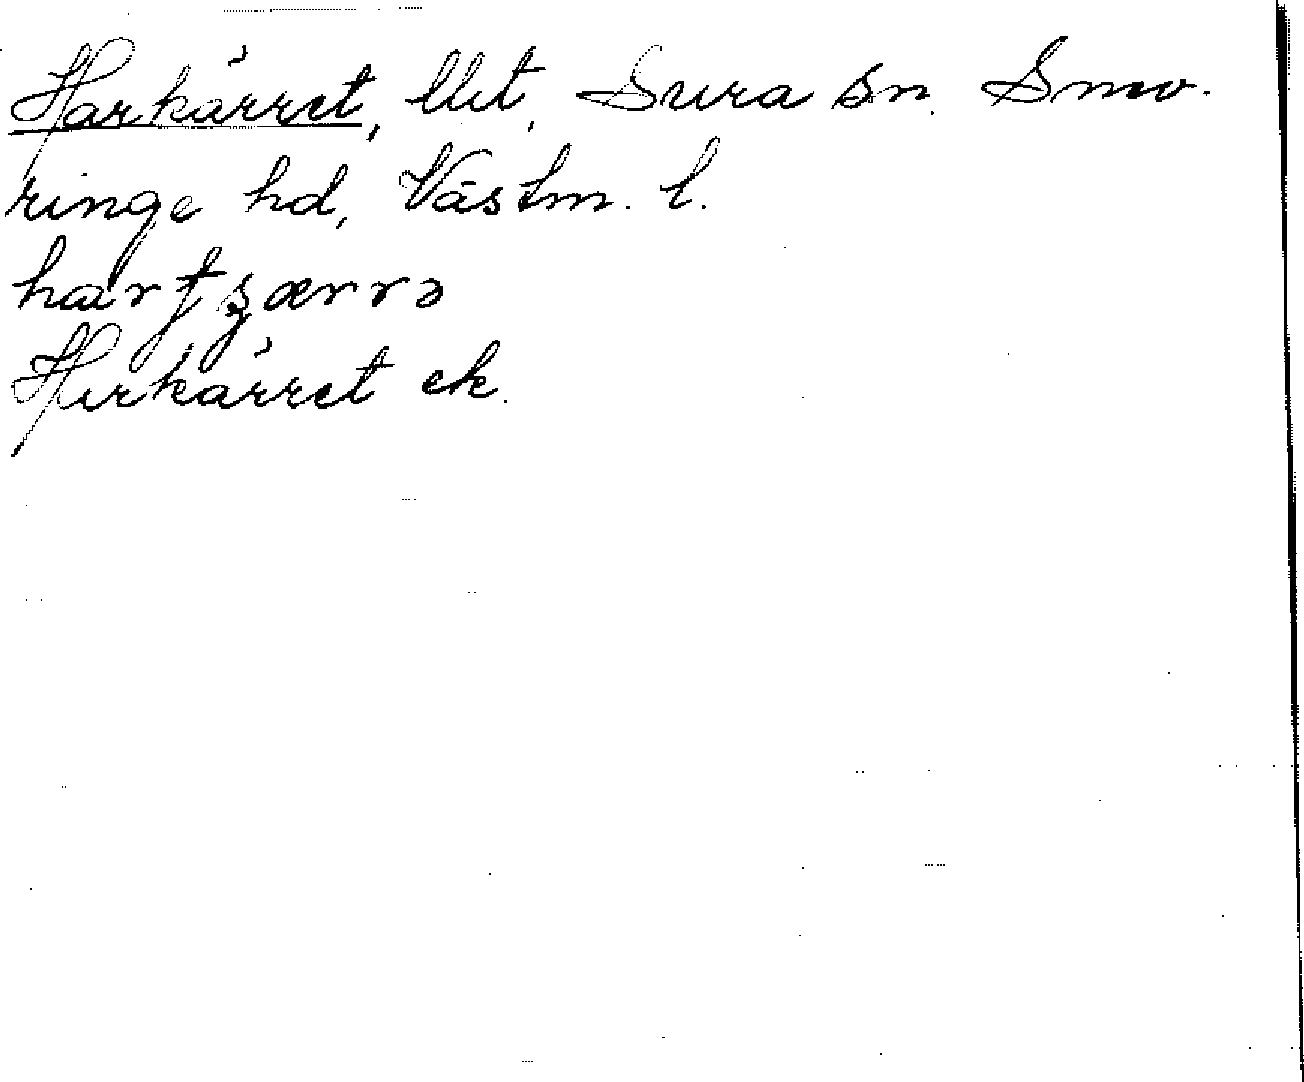 Harkärret, llet, Sura sn. Snev.
ringe hd, Västm. l.
Harkärret ek.